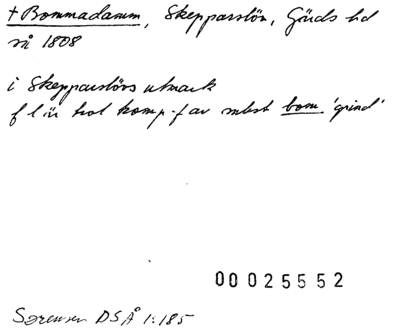 + Bommadamm, Skepparslöv, Gärds hd
rå 1808
i Skepparslövs utmark
f l ä trol komp.f av subst bom 'grind'
00025552
Sørensen DSÅ 1:185